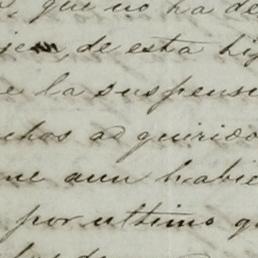 que no ha de
de esta hi
e la suspens
chos adquirido
ue aun habie
por ultimo q